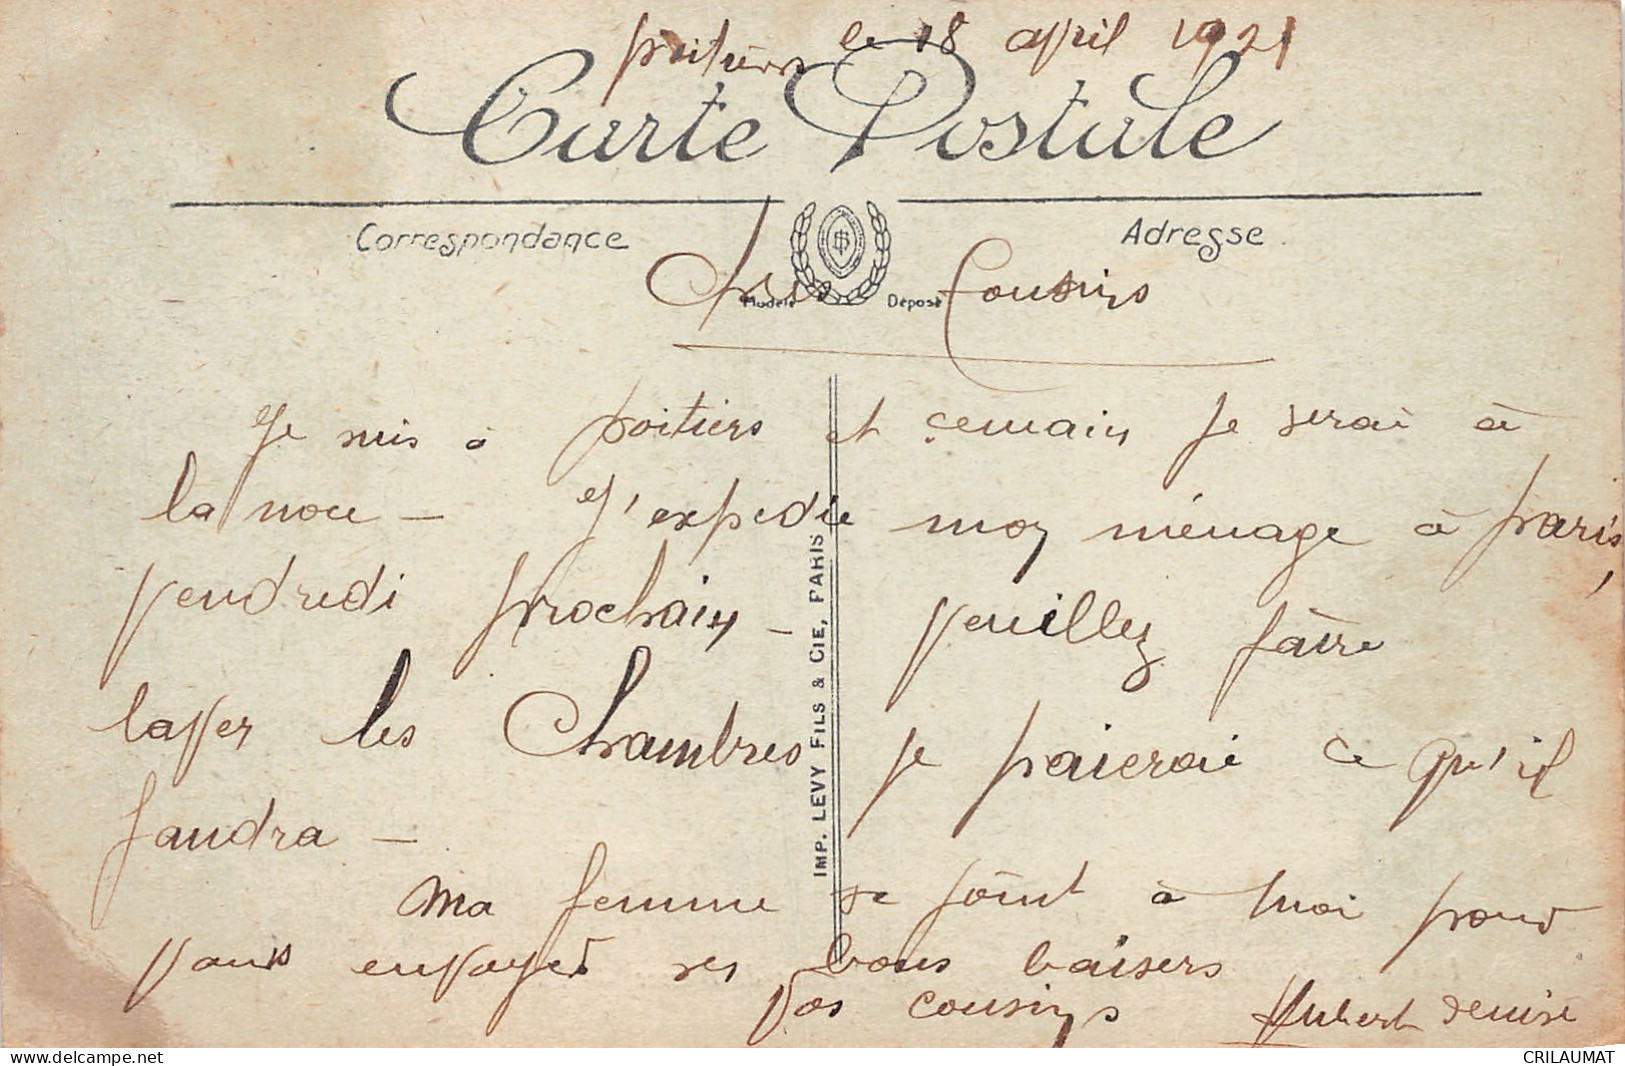 Poitiers le 18 april 1921
Carte Postale
Correspondance
Adresse
Chers Cousins
Modèle Déposé
Je suis à Poitiers et demain je serai à
la noce — J'expedie mon ménage à Paris,
vendredi prochain — Veuillez faire
laver les Chambres je paierai ce qu'il
faudra —
Ma femme se joint à moi pour
vous envoyer ses bons baisers
Vos cousins Hubert Denise
IMP. LEVY FILS & CIE, PARIS
delcampe.net
CRILAUMAT